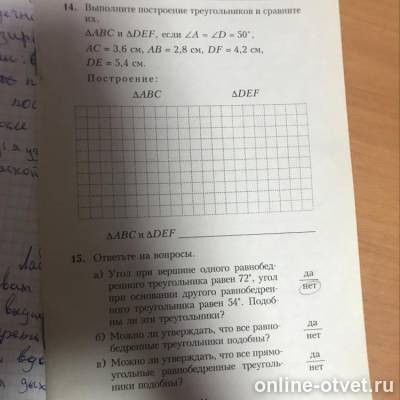 14. Выполните построение треугольников и сравните
их.
△ABC и △DEF, если ∠A = ∠D = 50°,
AC = 3,6 см, AB = 2,8 см, DF = 4,2 см,
DE = 5,4 см.
Построение:
△ABC △DEF
△ABC и △DEF
15. Ответьте на вопросы.
а) Угол при вершине одного равнобед-
ренного треугольника равен 72°, угол
при основании другого равнобедрен-
ного треугольника равен 54°. Подоб-
ны ли эти треугольники?
да
нет
б) Можно ли утверждать, что все равно-
бедренные треугольники подобны?
да
нет
в) Можно ли утверждать, что все прямо-
угольные равнобедренные треуголь-
ники подобны?
да
нет
online-otvet.ru